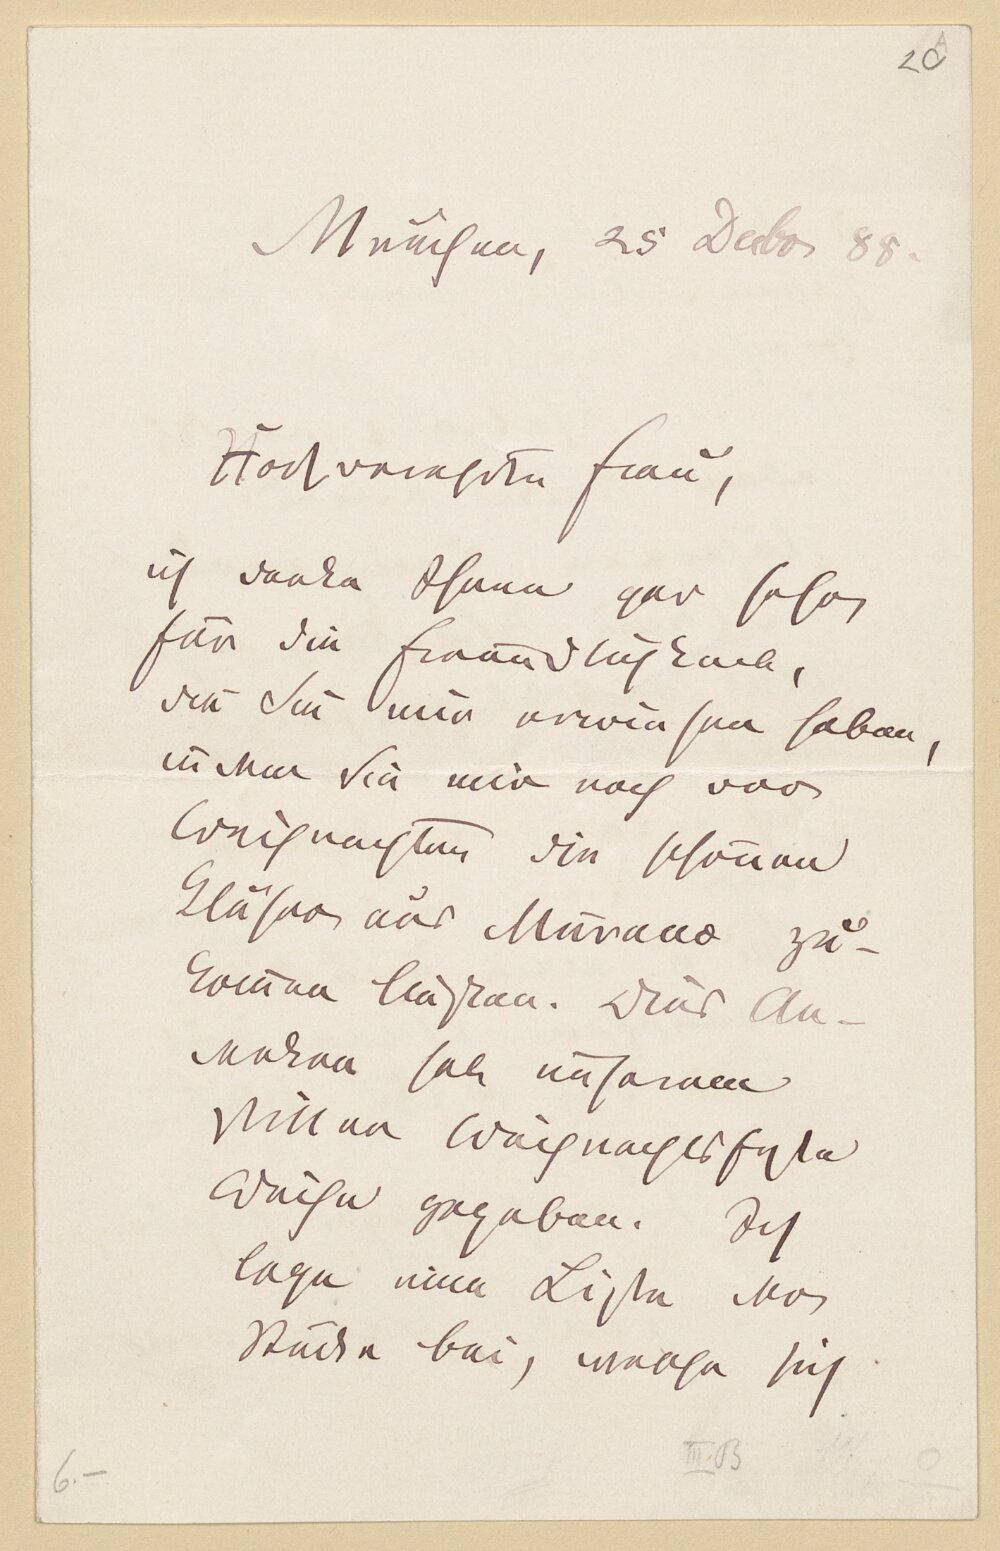 20
München, 25 Decbr 88.
Hochverehrte Frau,
ich danke Ihnen gar sehr
für die Freundlichkeit,
die Sie mir erwiesen haben,
indem Sie mir noch vor
Weihnachten die schönen
Gläser aus Murano zu-
kommen ließen. Dies An-
denken hat unserem
stillen Weihnachtsfeste
Weihe gegeben. Ich
lege eine Liste der
Stücke bei, welche sich
6.–
III.B